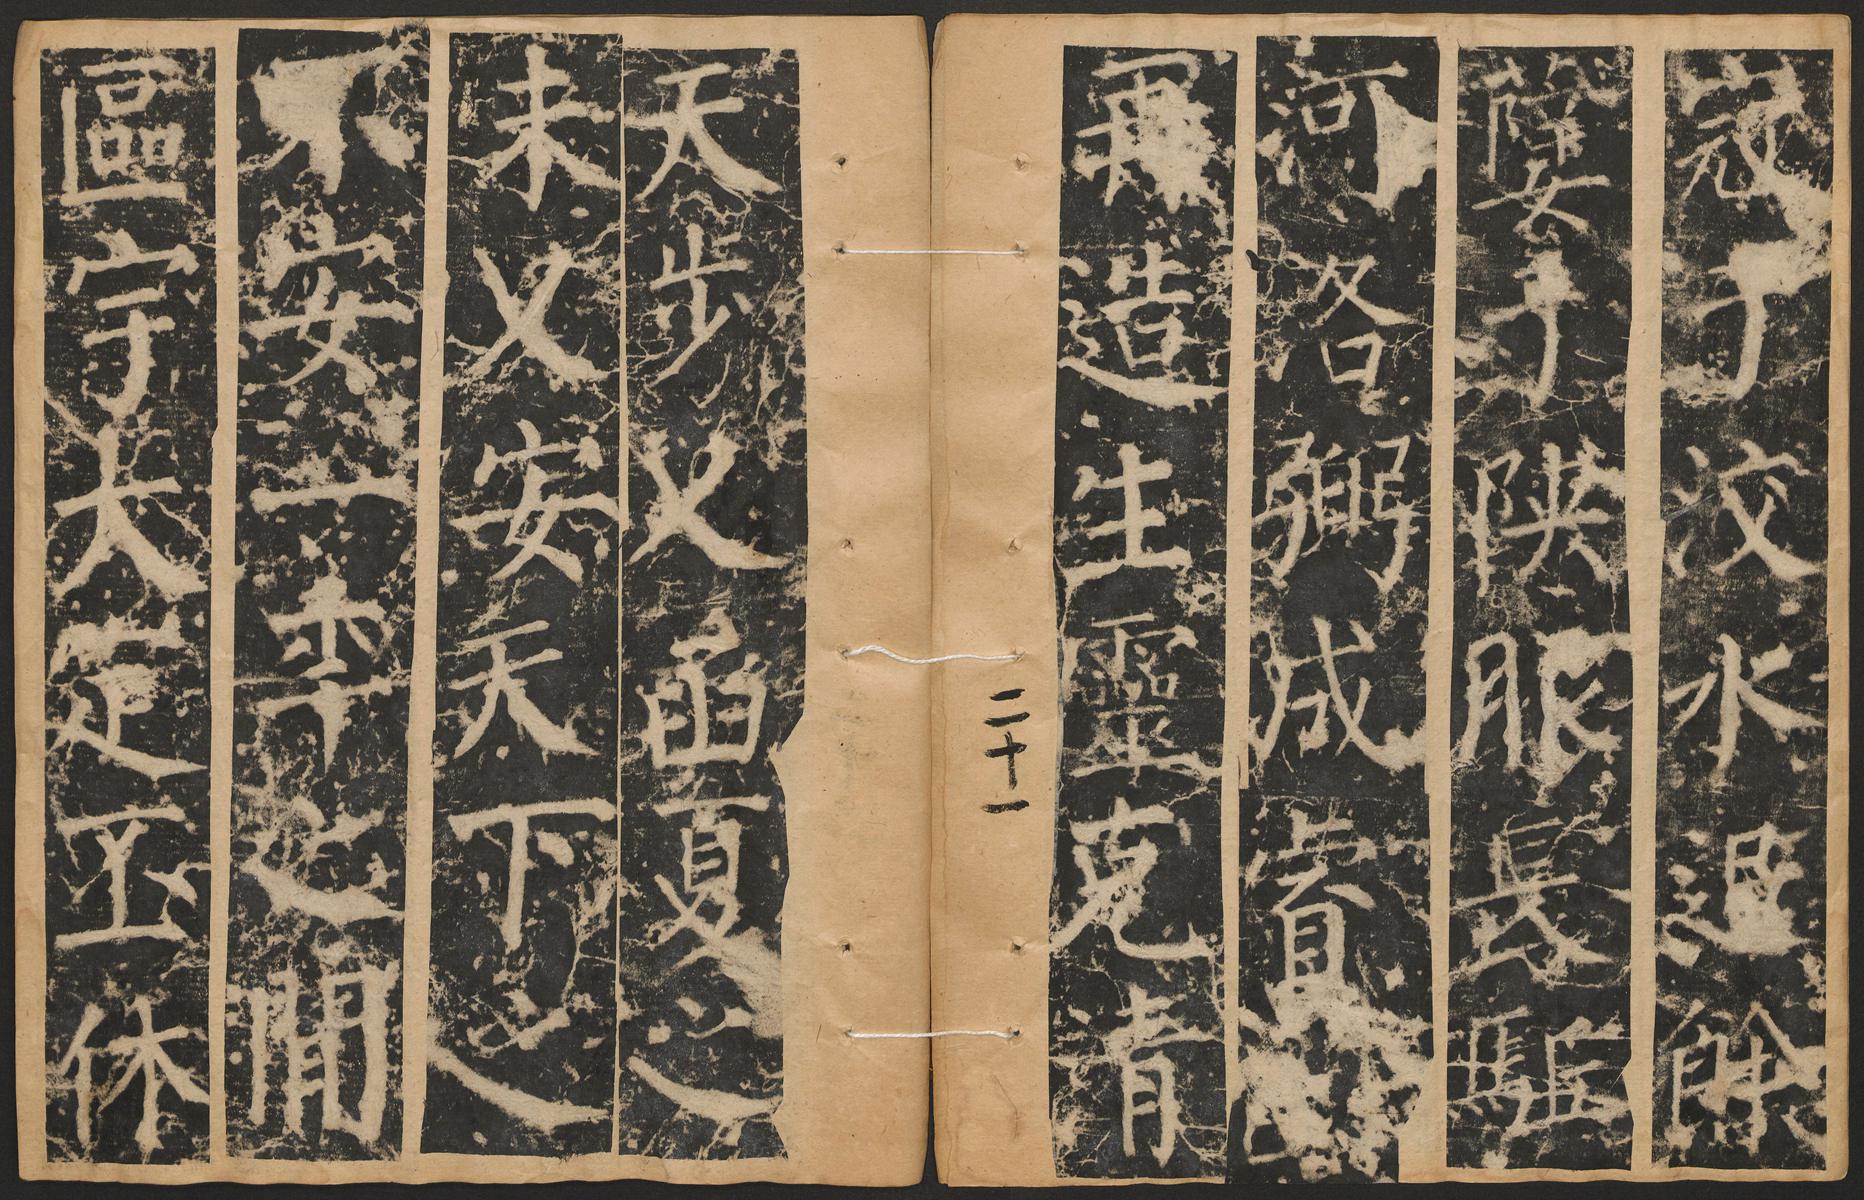 寇于洨水退餘
孽于陝服長驅
河洛弼成睿
再造生靈克清
二十一
天步乂函夏之
未乂安天下之
不安一季之間
區宇大定休